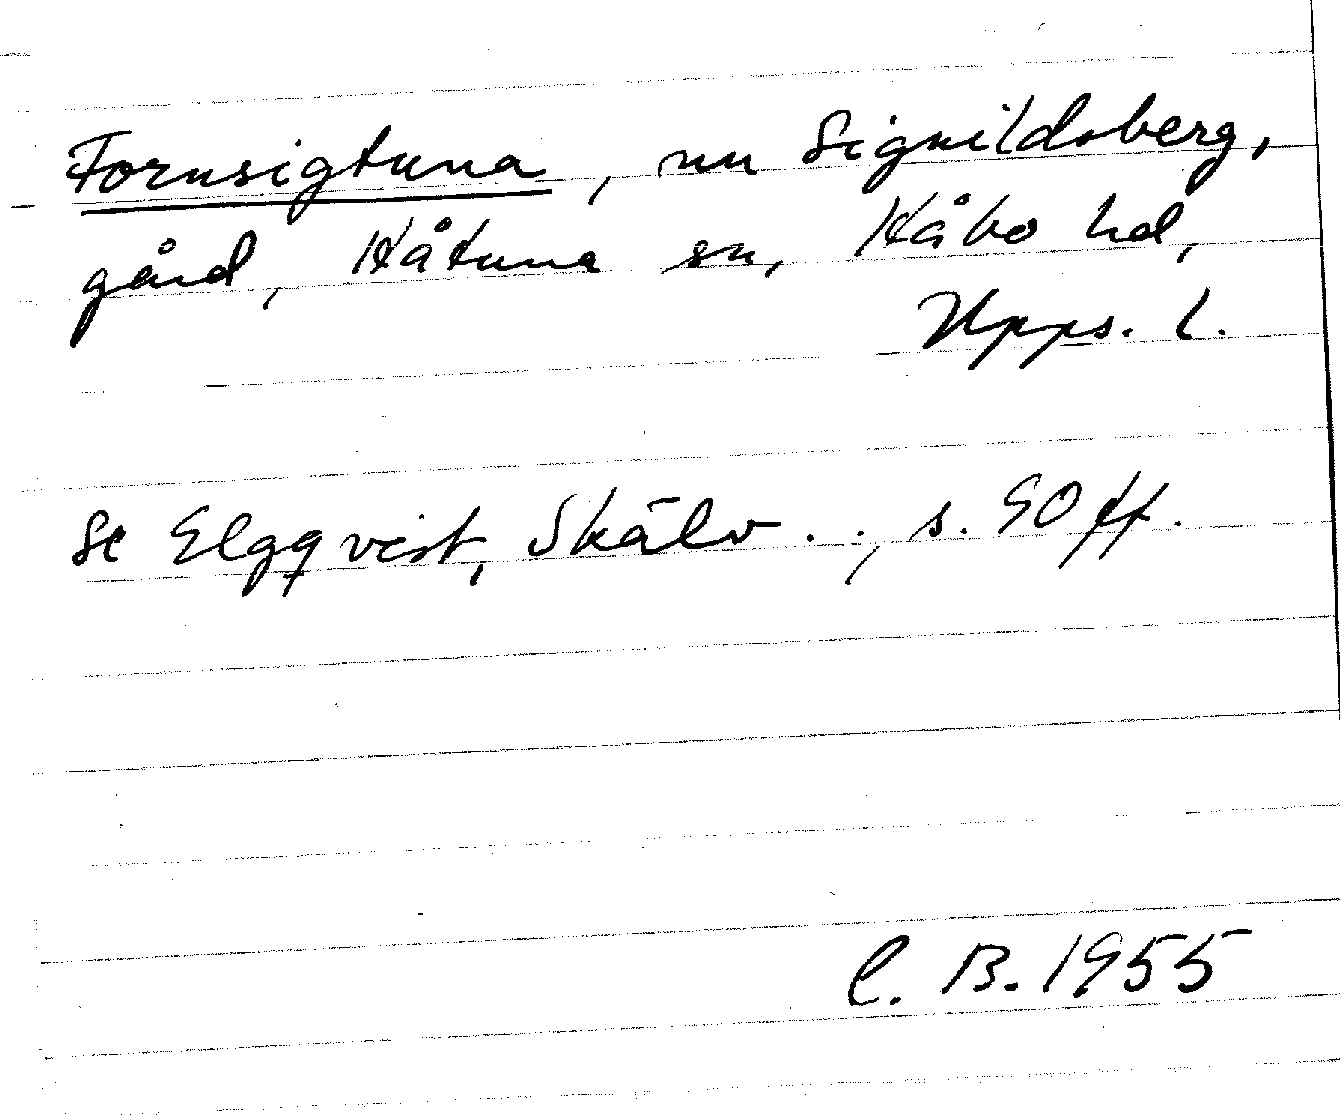 Fornsigtuna, nu Signildsberg,
gård, Håtuna sn, Håbo hd,
Upps. l.
Se Elgqvist, Skälv . ., s. 90 ff.
C. B. 1955